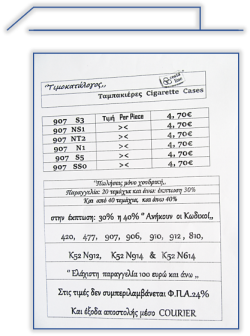 "Τιμοκατάλογος,,
Ταμπακιέρες Cigarette Cases
907 S3 Τιμή Per Piece 4, 70€
907 NS1 >< 4, 70€
907 NT2 >< 4, 70€
907 N1 >< 4, 70€
907 S5 >< 4, 70€
907 SS0 >< 4, 70€
"Πωλήσεις μόνο χονδρική,,
Παραγγελία: 20 τεμάχια και άνω: έκπτωση 30%
Και από 40 τεμάχια, και άνω 40%
στην έκπτωση: 30% η 40% " Ανήκουν οι Κωδικοί,,
420, 477, 907, 906, 910, 912 , 810,
K52 N912, K52 N914 & K52 N614
" Ελάχιστη παραγγελία 100 ευρώ και άνω ,,
Στις τιμές δεν συμπεριλαμβάνεται Φ.Π.Α.24%
Και έξοδα αποστολής μέσο COURIER